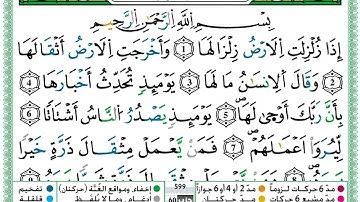 بِسْمِ ٱللَّهِ ٱلرَّحْمَٰنِ ٱلرَّحِيمِ
إِذَا زُلْزِلَتِ ٱلْأَرْضُ زِلْزَالَهَا ١ وَأَخْرَجَتِ ٱلْأَرْضُ أَثْقَالَهَا
٢ وَقَالَ ٱلْإِنسَٰنُ مَا لَهَا ٣ يَوْمَئِذٍ تُحَدِّثُ أَخْبَارَهَا ٤
بِأَنَّ رَبَّكَ أَوْحَىٰ لَهَا ٥ يَوْمَئِذٍ يَصْدُرُ ٱلنَّاسُ أَشْتَاتًا ٦
لِّيُرَوْا۟ أَعْمَٰلَهُمْ ٧ فَمَن يَعْمَلْ مِثْقَالَ ذَرَّةٍ خَيْرًا
مدّ ٦ حركات لزوماً مدّ ٢ أو ٤ أو ٦ جوازاً 599 إخفاء، ومواقع الغُنَّة (حركتان) تفخيم
مدّ مشبع ٦ حركات مدّ حركتان إدغام، وما لا يُلفَظ قلقلة